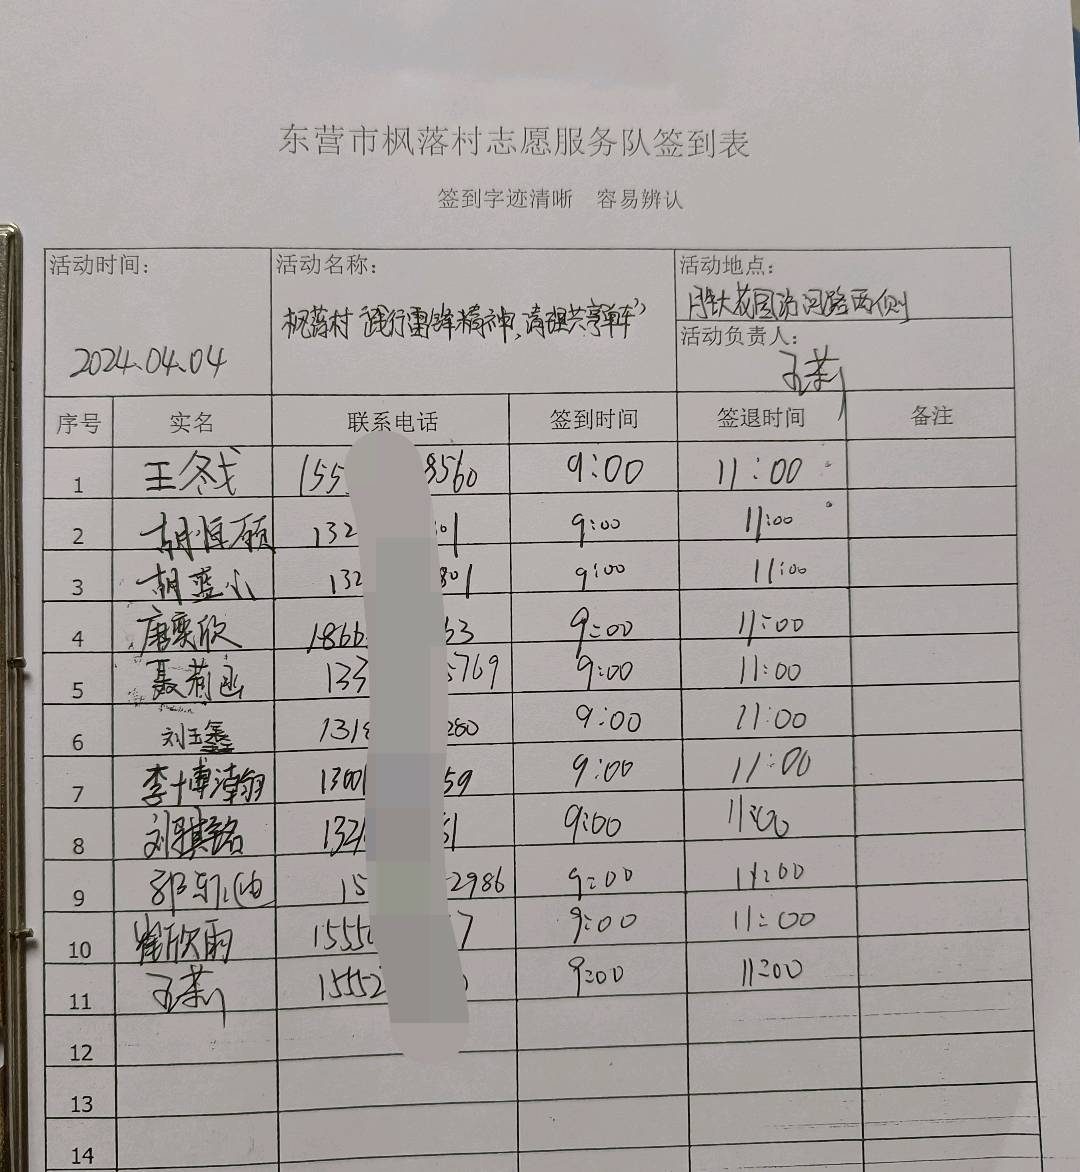 东营市枫落村志愿服务队签到表
签到字迹清晰 容易辨认
活动时间: 活动名称: 活动地点:
枫落村“践行雷锋精神,清理共享单车” 路两侧
活动负责人:
2024.04.04
序号 实名 联系电话 签到时间 签退时间 备注
1 王冬戈 155 8560 9:00 11:00
2 胡恒硕 132 01 9:00 11:00
3 胡蓝小 132 801 9:00 11:00
4 唐奕欣 1866 63 9:00 11:00
5 聂莉函 133 5769 9:00 11:00
6 刘玉鑫 1318 280 9:00 11:00
7 李博瀚 1300 59 9:00 11:00
8 刘骐铭 132 51 9:00 11:00
9 15 2986 9:00 11:00
10 崔欣雨 1555 7 9:00 11:00
11 15552 9:00 11:00
12
13
14